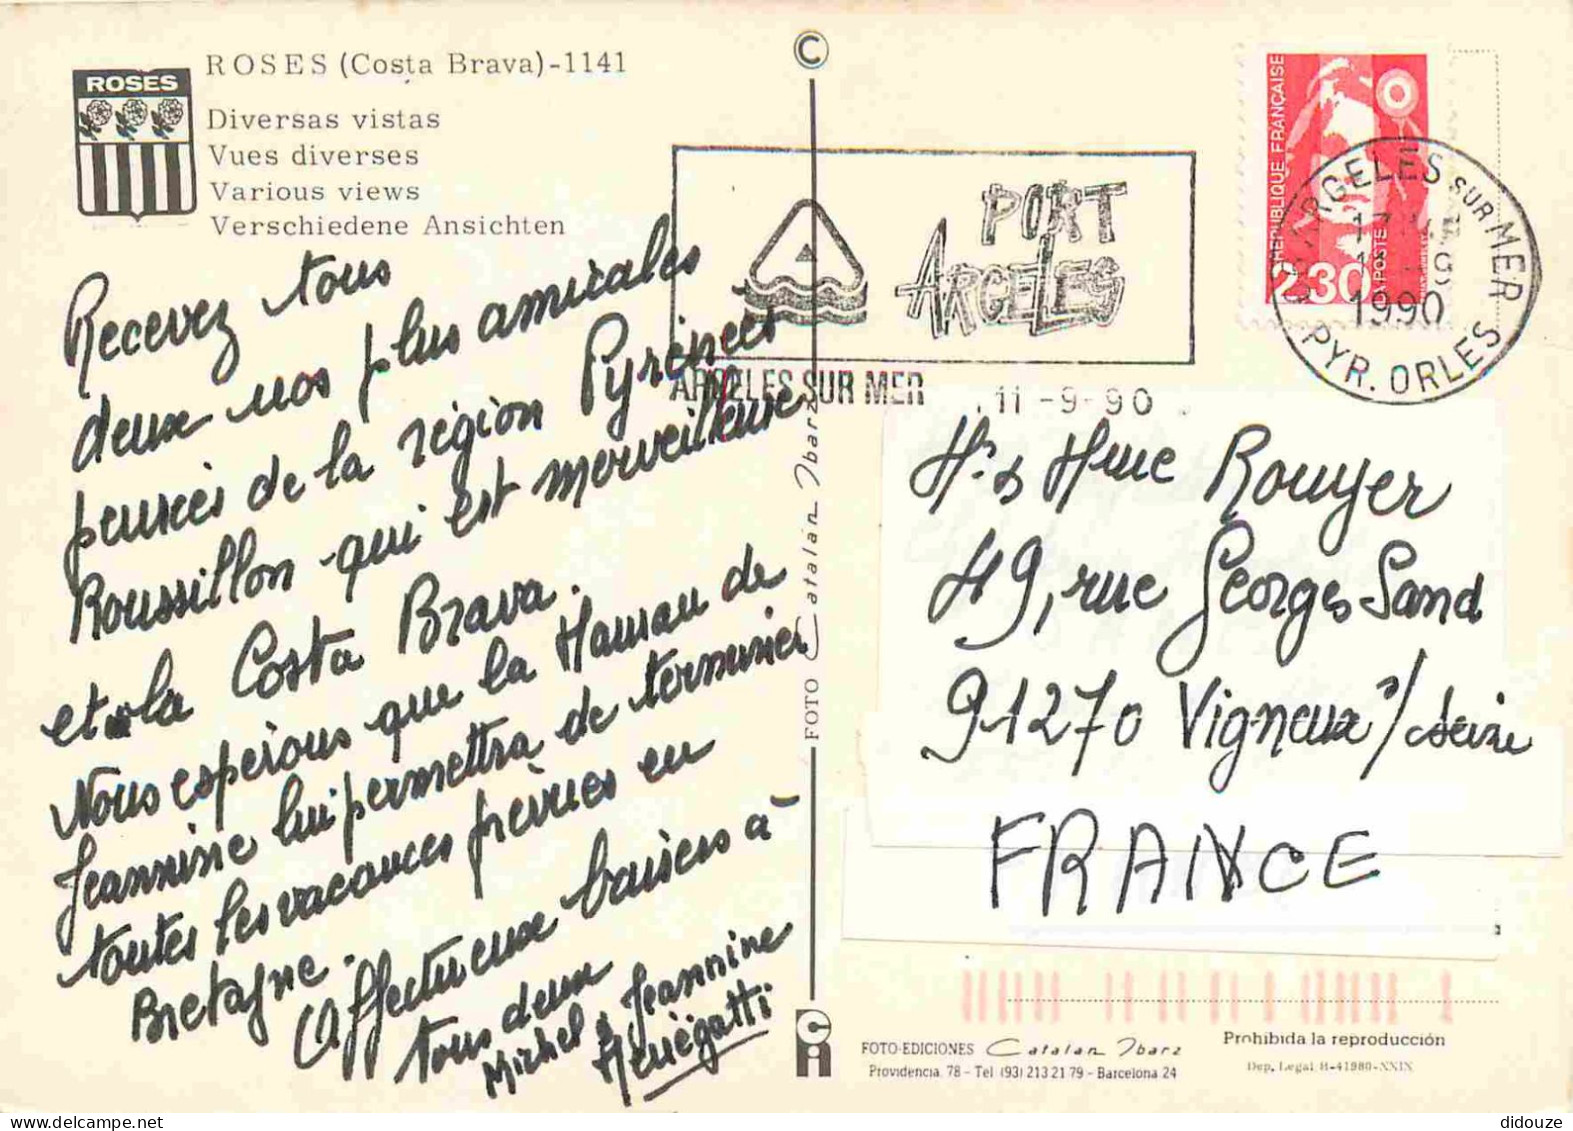 ROSES
ROSES (Costa Brava)-1141
Diversas vistas
Vues diverses
Various views
Verschiedene Ansichten
Recevez tous
deux nos plus amicales
pensées de la région Pyrénées
Roussillon qui est merveilleuse
et la Costa Brava.
Nous espérons que la Maman de
Jeannine lui permettra de terminer
toutes les vacances prévues en
Bretagne.
Affectueux baisers à
tous deux
Michel & Jeannine
Menégatti
©
FOTO Catalán Ibarz
PORT
ARGELES
ARGELES SUR MER
11-9-90
REPUBLIQUE FRANÇAISE
LA POSTE
2,30
ARGELES SUR MER
1990
PYR. ORLES
Mr & Mme Rouyer
49, rue Georges Sand
91270 Vigneux s/ Seine
FRANCE
FOTO-EDICIONES Catalán Ibarz
Providencia, 78 - Tel (93) 213 21 79 - Barcelona 24
Prohibida la reproducción
Dep. Legal B-41980-XXIX
didouze